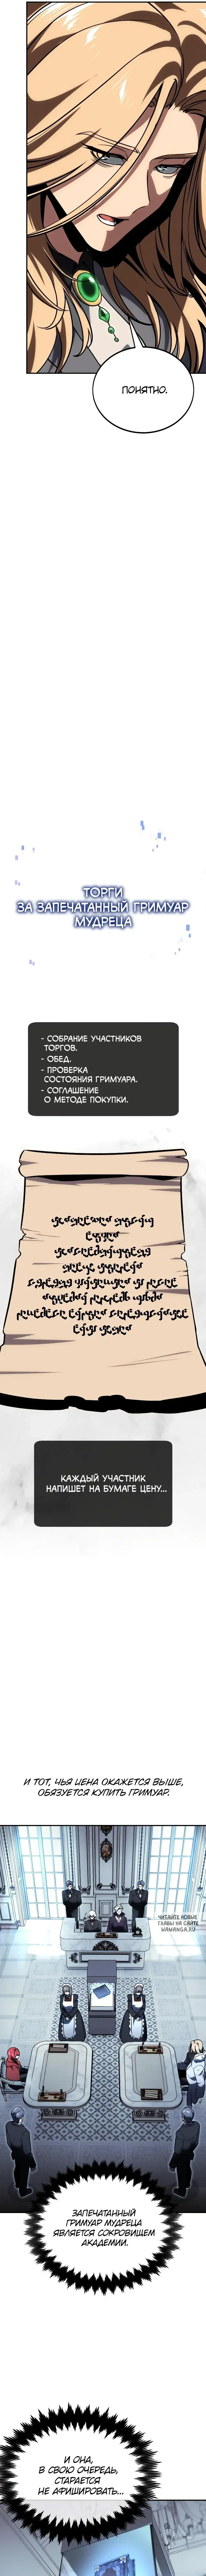 ПОНЯТНО.
ТОРГИ
ЗА ЗАПЕЧАТАННЫЙ ГРИМУАР
МУДРЕЦА
- СОБРАНИЕ УЧАСТНИКОВ
ТОРГОВ.
- ОБЕД.
- ПРОВЕРКА
СОСТОЯНИЯ ГРИМУАРА.
- СОГЛАШЕНИЕ
О МЕТОДЕ ПОКУПКИ.
КАЖДЫЙ УЧАСТНИК
НАПИШЕТ НА БУМАГЕ ЦЕНУ...
И ТОТ, ЧЬЯ ЦЕНА ОКАЖЕТСЯ ВЫШЕ,
ОБЯЗУЕТСЯ КУПИТЬ ГРИМУАР.
ЧИТАЙТЕ НОВЫЕ
ГЛАВЫ НА САЙТЕ
WAMANGA.RU
ЗАПЕЧАТАННЫЙ
ГРИМУАР МУДРЕЦА
ЯВЛЯЕТСЯ СОКРОВИЩЕМ
АКАДЕМИИ.
И ОНА,
В СВОЮ ОЧЕРЕДЬ,
СТАРАЕТСЯ
НЕ АФИШИРОВАТЬ...